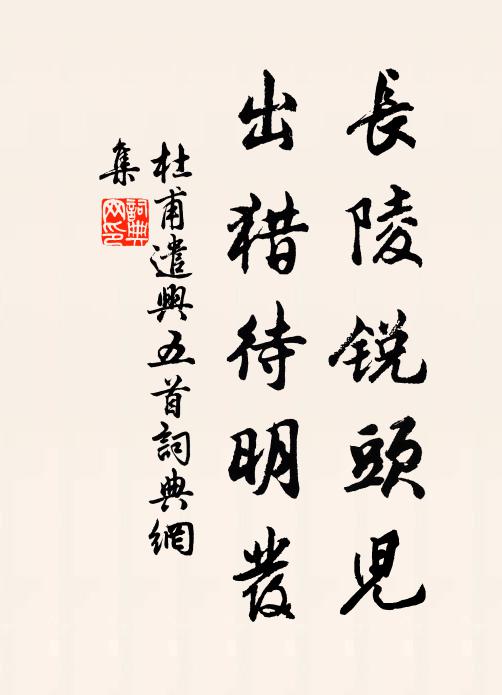 長陵锐頭児
出猎待明發
杜甫遣興五首詞典網
集
詞典
网印